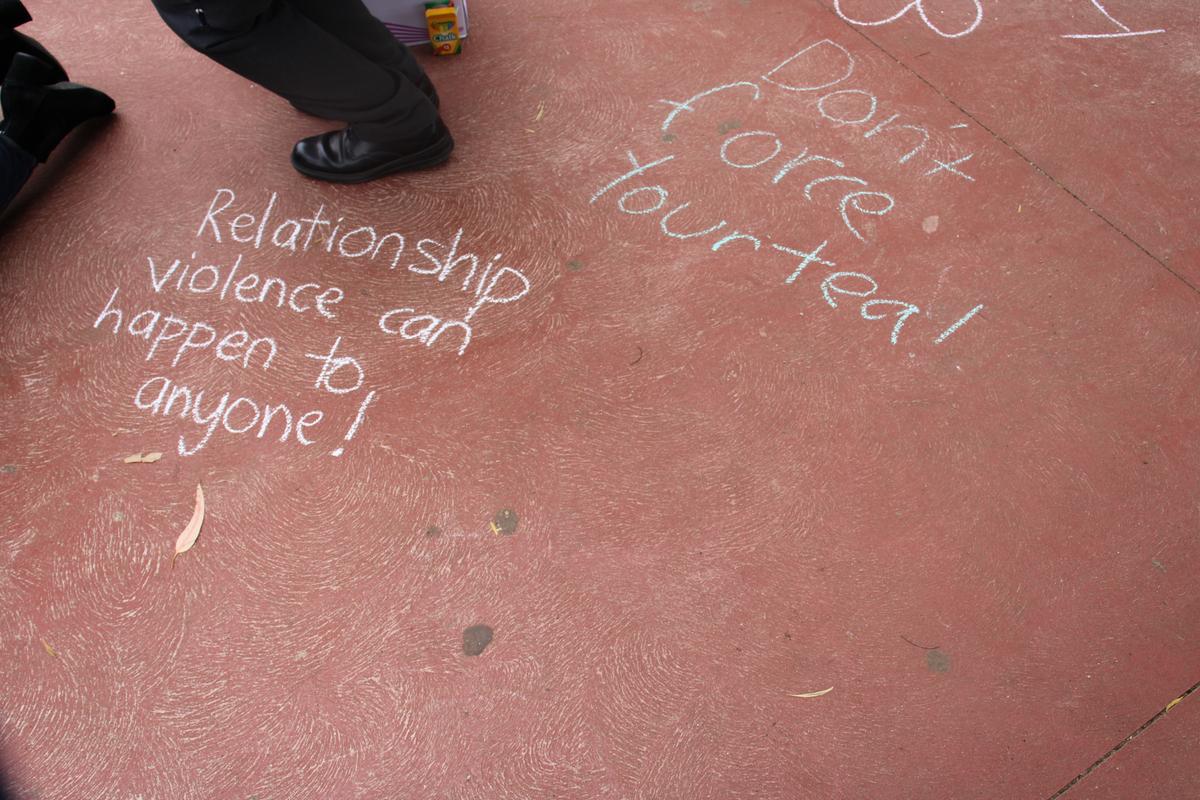 Chalk
Don't
force
Your tea!
Relationship
violence can
happen to
anyone!